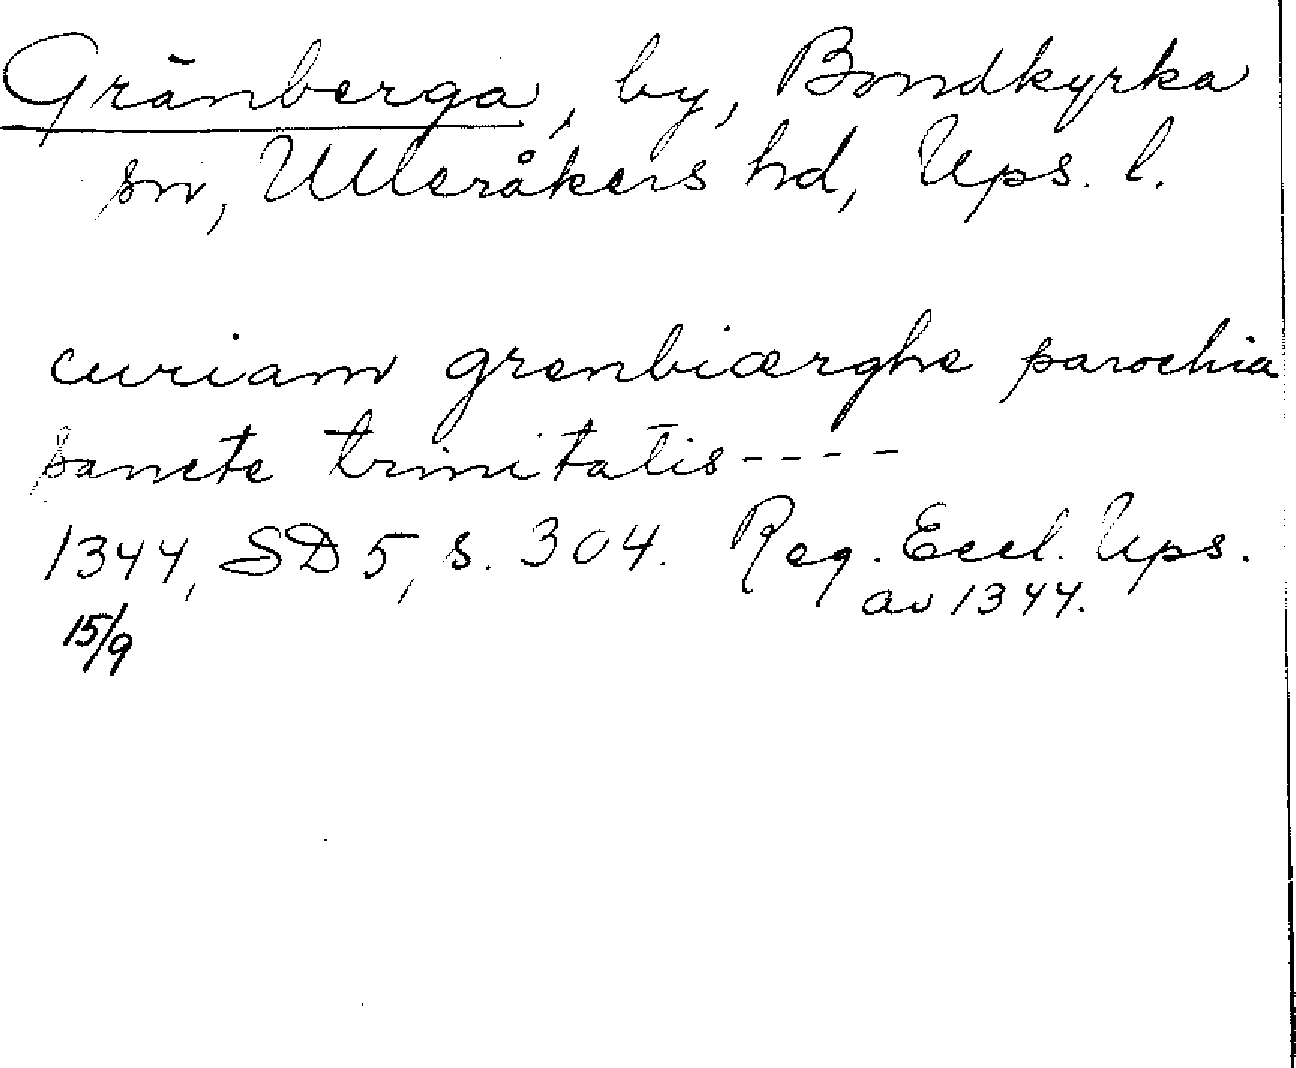 Gränberga, by, Bondkyrka
sn, Ulleråkers hd, Ups. l.
curiam grenbiærghe parochia
sancte trinitatis ----
1344, SD 5, s. 304. Reg. Eccl. Ups.
av 1344.
15/9